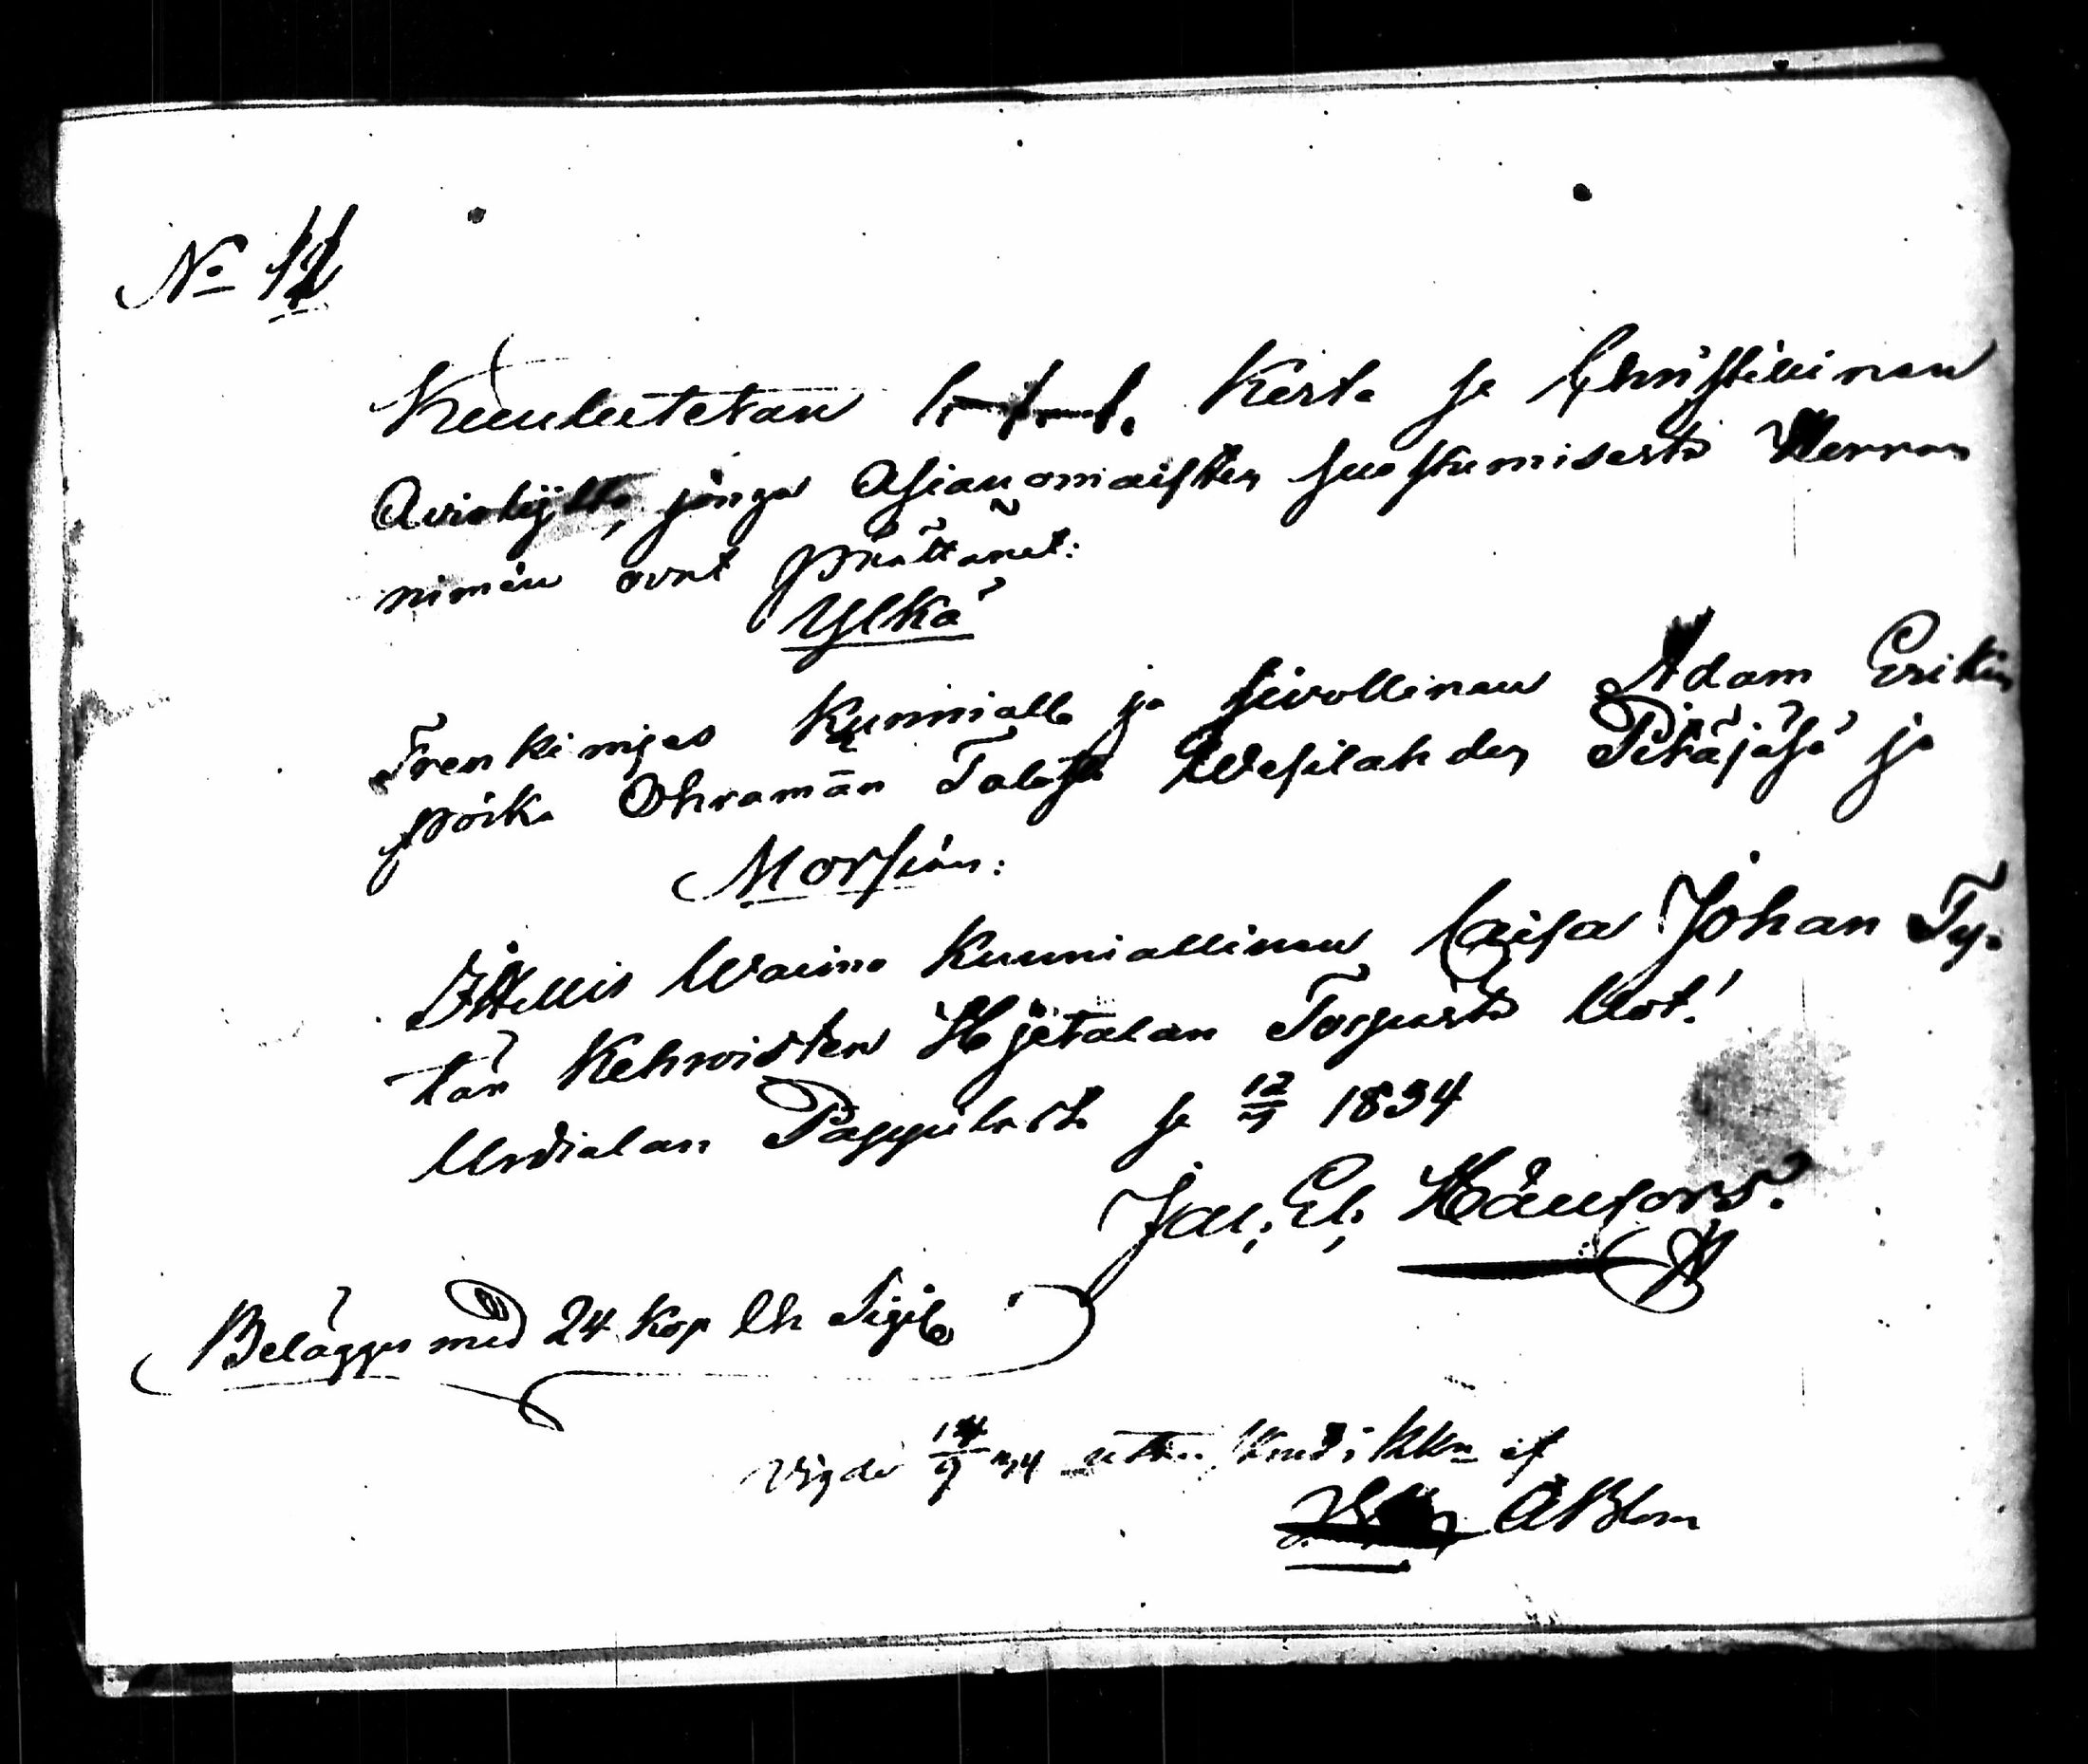 No 12
Kuulutetan Kerta se Christillinen
Aviolijtto, jonga Asianomaisten suostumisesta Herran
nimän ovat päättänet:
Ylkä
Trenkimjes Kunnialla ja siivollinen Adam Erikin
poika Ohramän Talosta Wesilahden Pitäjäsä ja
Morsian:
Ittellis Waimo Kunniallinen Caisa Johan Ty-
tär Kehroisten Hjetalan Torpasta Uot.!
Urdialan Pappilasta se 12/9 1834
Jac. El. Häufors.
Belägges med 24 kop Ch Sigil.
Vigde 14/9 34 utan af
ABlom